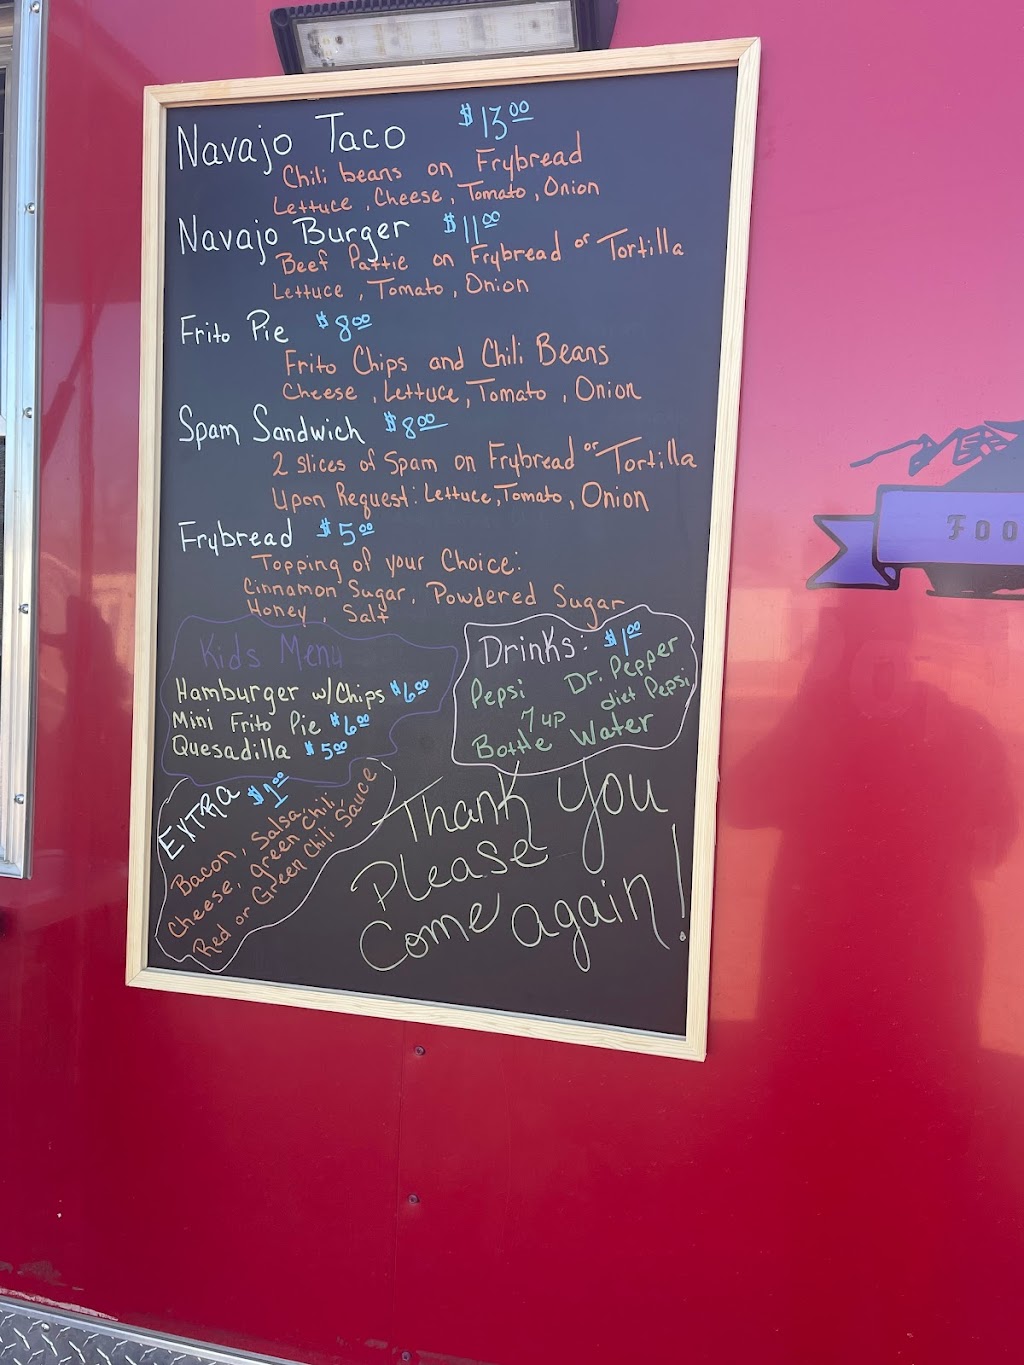 Navajo Taco $13.00
Chili beans on Frybread
Lettuce, Cheese, Tomato, Onion
Navajo Burger $11.00
Beef Pattie on Frybread or Tortilla
Lettuce, Tomato, Onion
Frito Pie $8.00
Frito Chips and Chili Beans
Cheese, Lettuce, Tomato, Onion
Spam Sandwich $8.00
2 slices of Spam on Frybread or Tortilla
Upon Request: Lettuce, Tomato, Onion
Frybread $5.00
Topping of your Choice:
Cinnamon Sugar, Powdered Sugar
Honey, Salt
Kids Menu
Hamburger w/Chips $6.00
Mini Frito Pie $6.00
Quesadilla $5.00
Drinks: $1.00
Pepsi Dr. Pepper
7 up diet Pepsi
Bottle Water
EXTRA $1.00
Bacon, Salsa,
Cheese, green Chili,
Red or Green Chili Sauce
Thank You
Please
Come again!
Foo